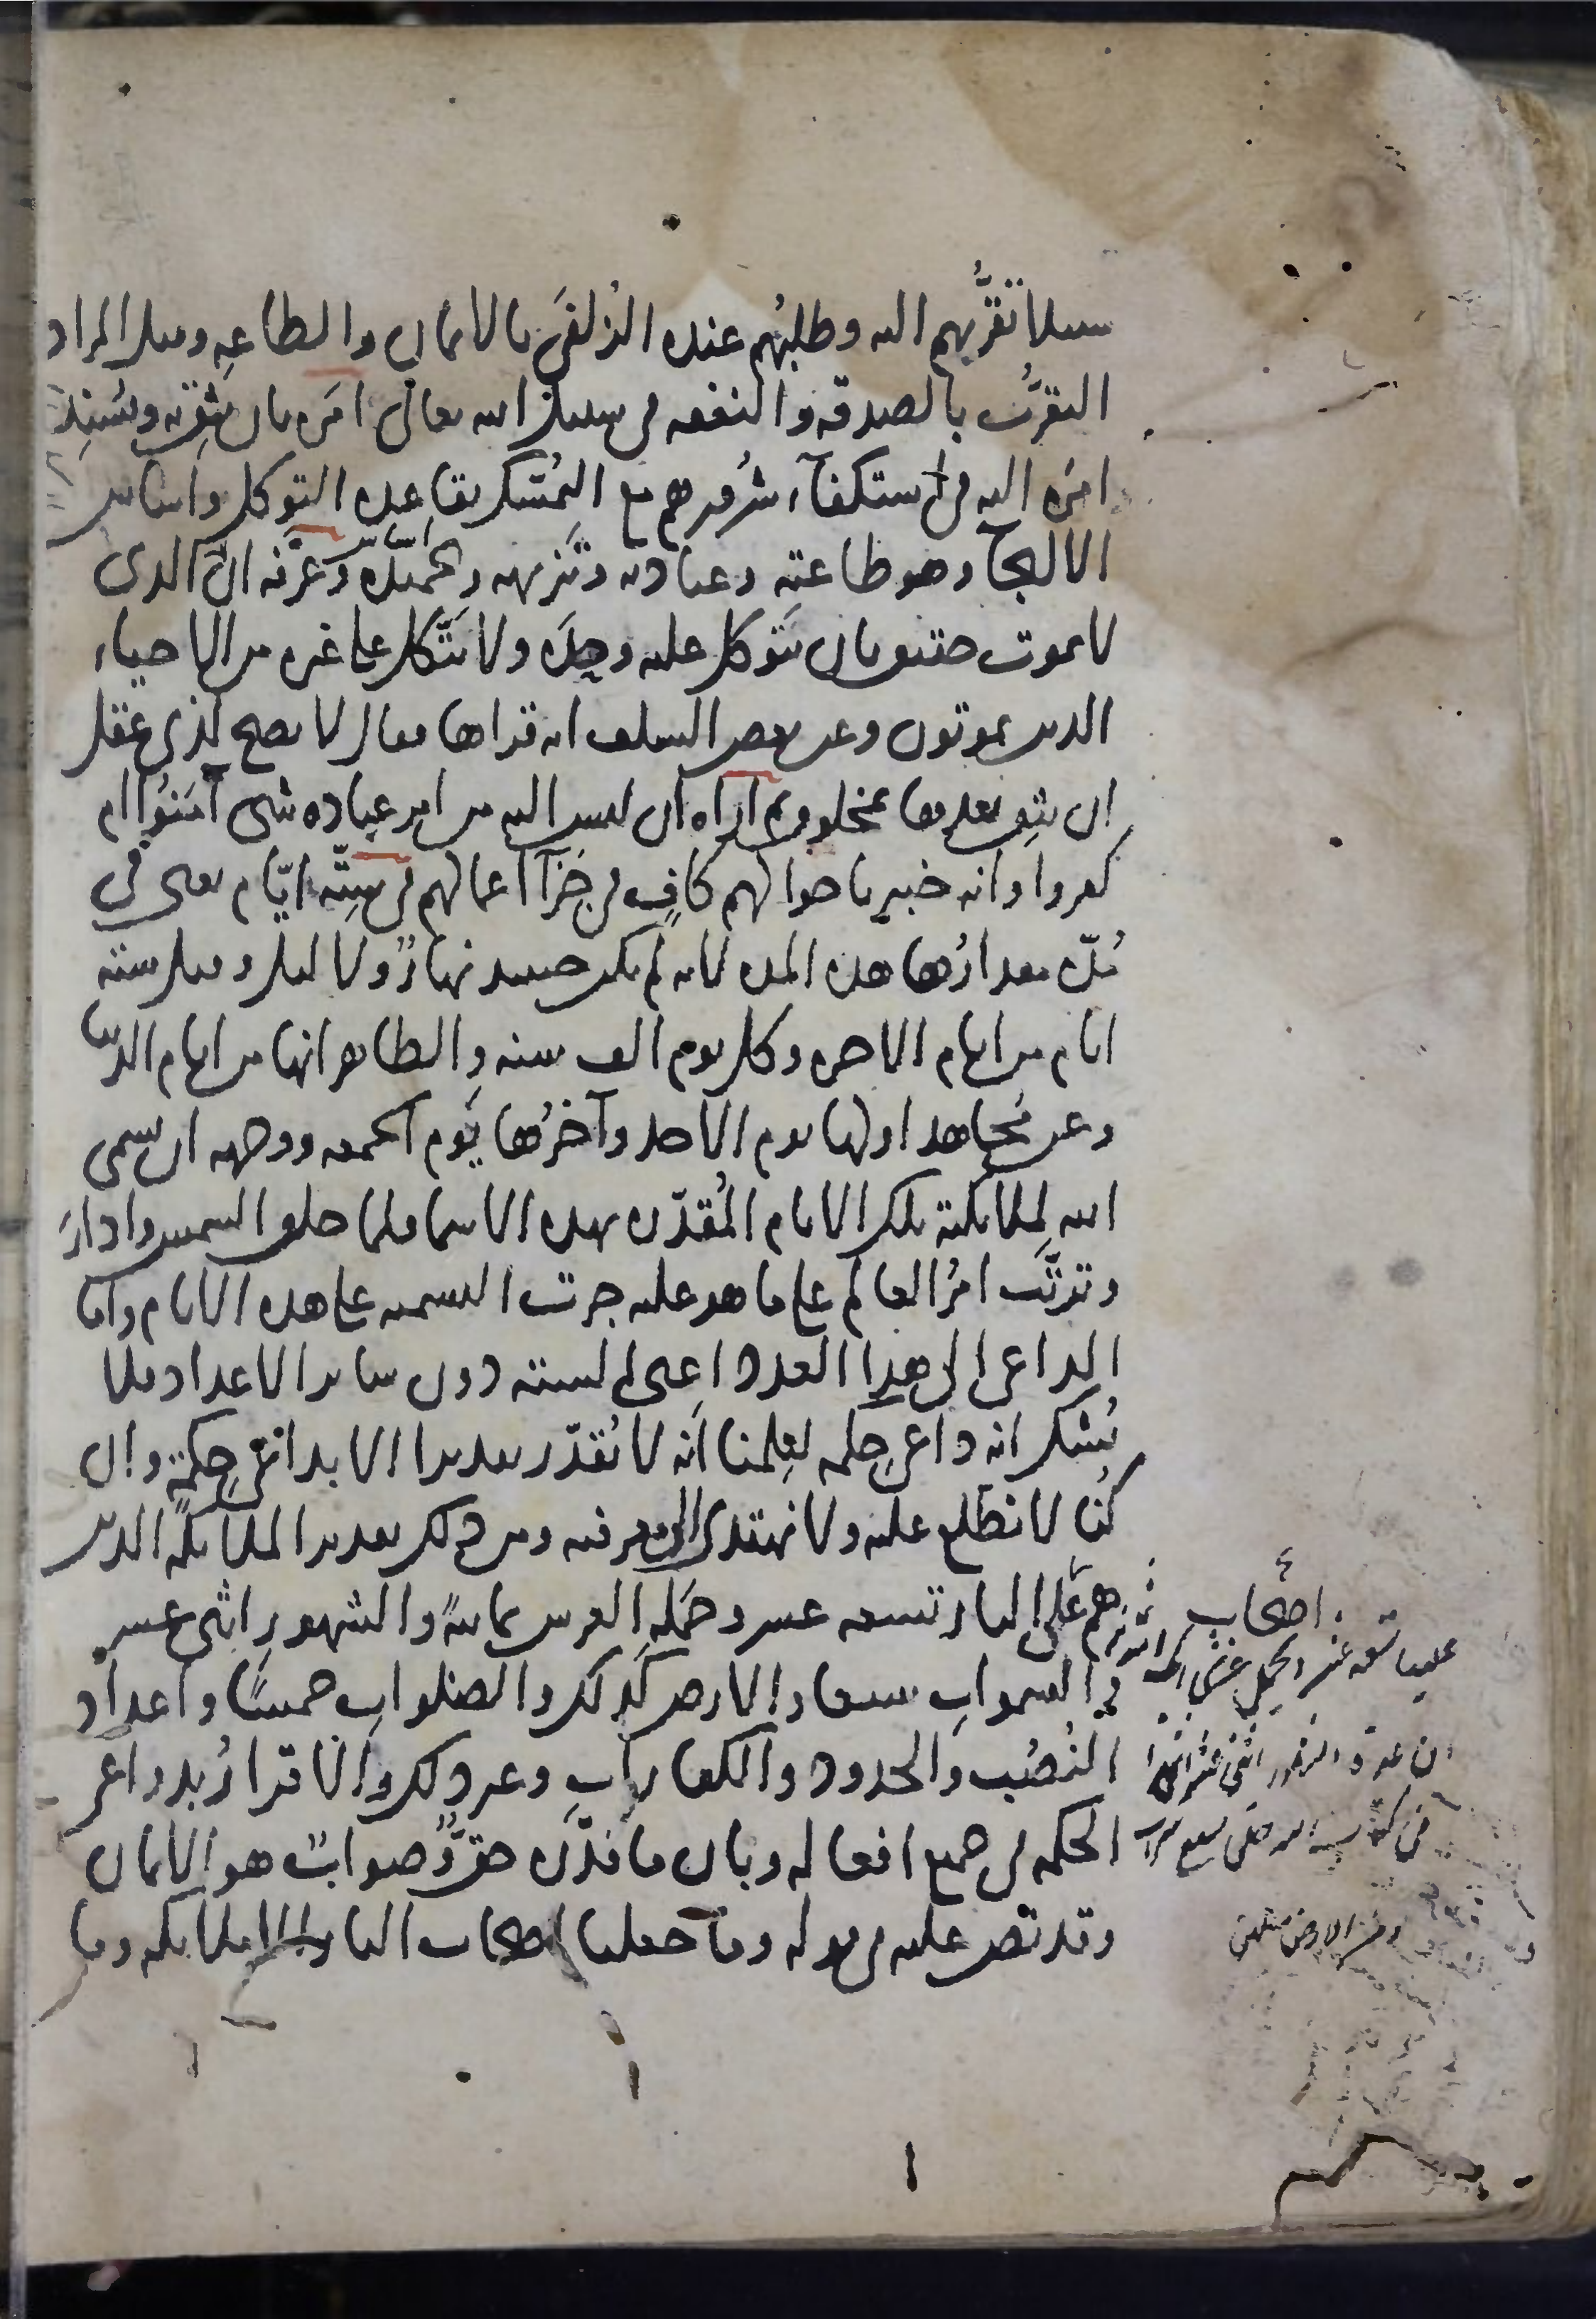 سبيلا تقرُّبهم اليه وطلبُهم عنده الزُلفَى بالايمان والطاعه وقيل المراد
التقرُّب بالصدقه والنفقه فى سبيل الله تعالى امَره بان يثِق به ويُسنِد
امرَه اليه فى استكفآء شرُورهم مع التمسُّك بقاعده التوكل واساس
الالتجآ وهو طاعته وعبادته وتنزيهه وتحميده وعَرّفه انّ الذى
لا يموت حقيق بان يُتَوكل عليه وحدَه ولا يُتَّكل على غيره من الاحياء
الذين يموتون وعن بعض السلف انه قراها فقال لا يصح لذى عقل
ان يثِق بعدها بمخلوق ثم اراه ان ليس اليه من امر عباده شى آمَنُوا ام
كفروا وانه خبير باحوالهم كافٍ فى جَزآ اعمالهم فى سِتّه ايّام يعنى فى
مُدّه مقدارُها هذه المده لانه لم يكن حينئذ نهارٌ ولا ليل وقيل سته
ايام من ايام الاخره وكل يوم الف سنه والظاهر انها من ايام الدنيا
وعن مُجاهد اولها يوم الاحد وآخرُها يَوم الجمعه ووجهه ان يسمى
الله لملائكته تلك الايام المُقدّره بهذه الاسما فلما خلق الشمس وادارَها
وترتَّب امرُ العالم على ما هو عليه جرت التسميه على هذه الايام واما
الداعى الى هذا العدد اعنى السته دون سائر الاعداد فلا
نُشك انه داعى حكمه لعِلمنا انّه لا يُقدّر تقديرا الا بداعى حِكمةٍ وان
كُنا لا نطّلع عليه ولا نهتدى الى معرفته ومن ذلك تقدير الملائكه الذين
هم اصحاب النار تسعه عشر وحَمَله العرش ثمانيهً والشهور اثنى عشر
والسموات سبعا والارض كذلك والصلوات خمسًا واعداد
النُصُب والحدود والكفارات وغير ذلك والاقرارُ بدواعى
الحكمه فى جميع افعاله وبان ما قدّره حقٌّ وصوابٌ هو الايمان
وقد نَصّ عليه فى قوله وما جعلنا اصحاب النار الا ملائكه وما
اصحاب